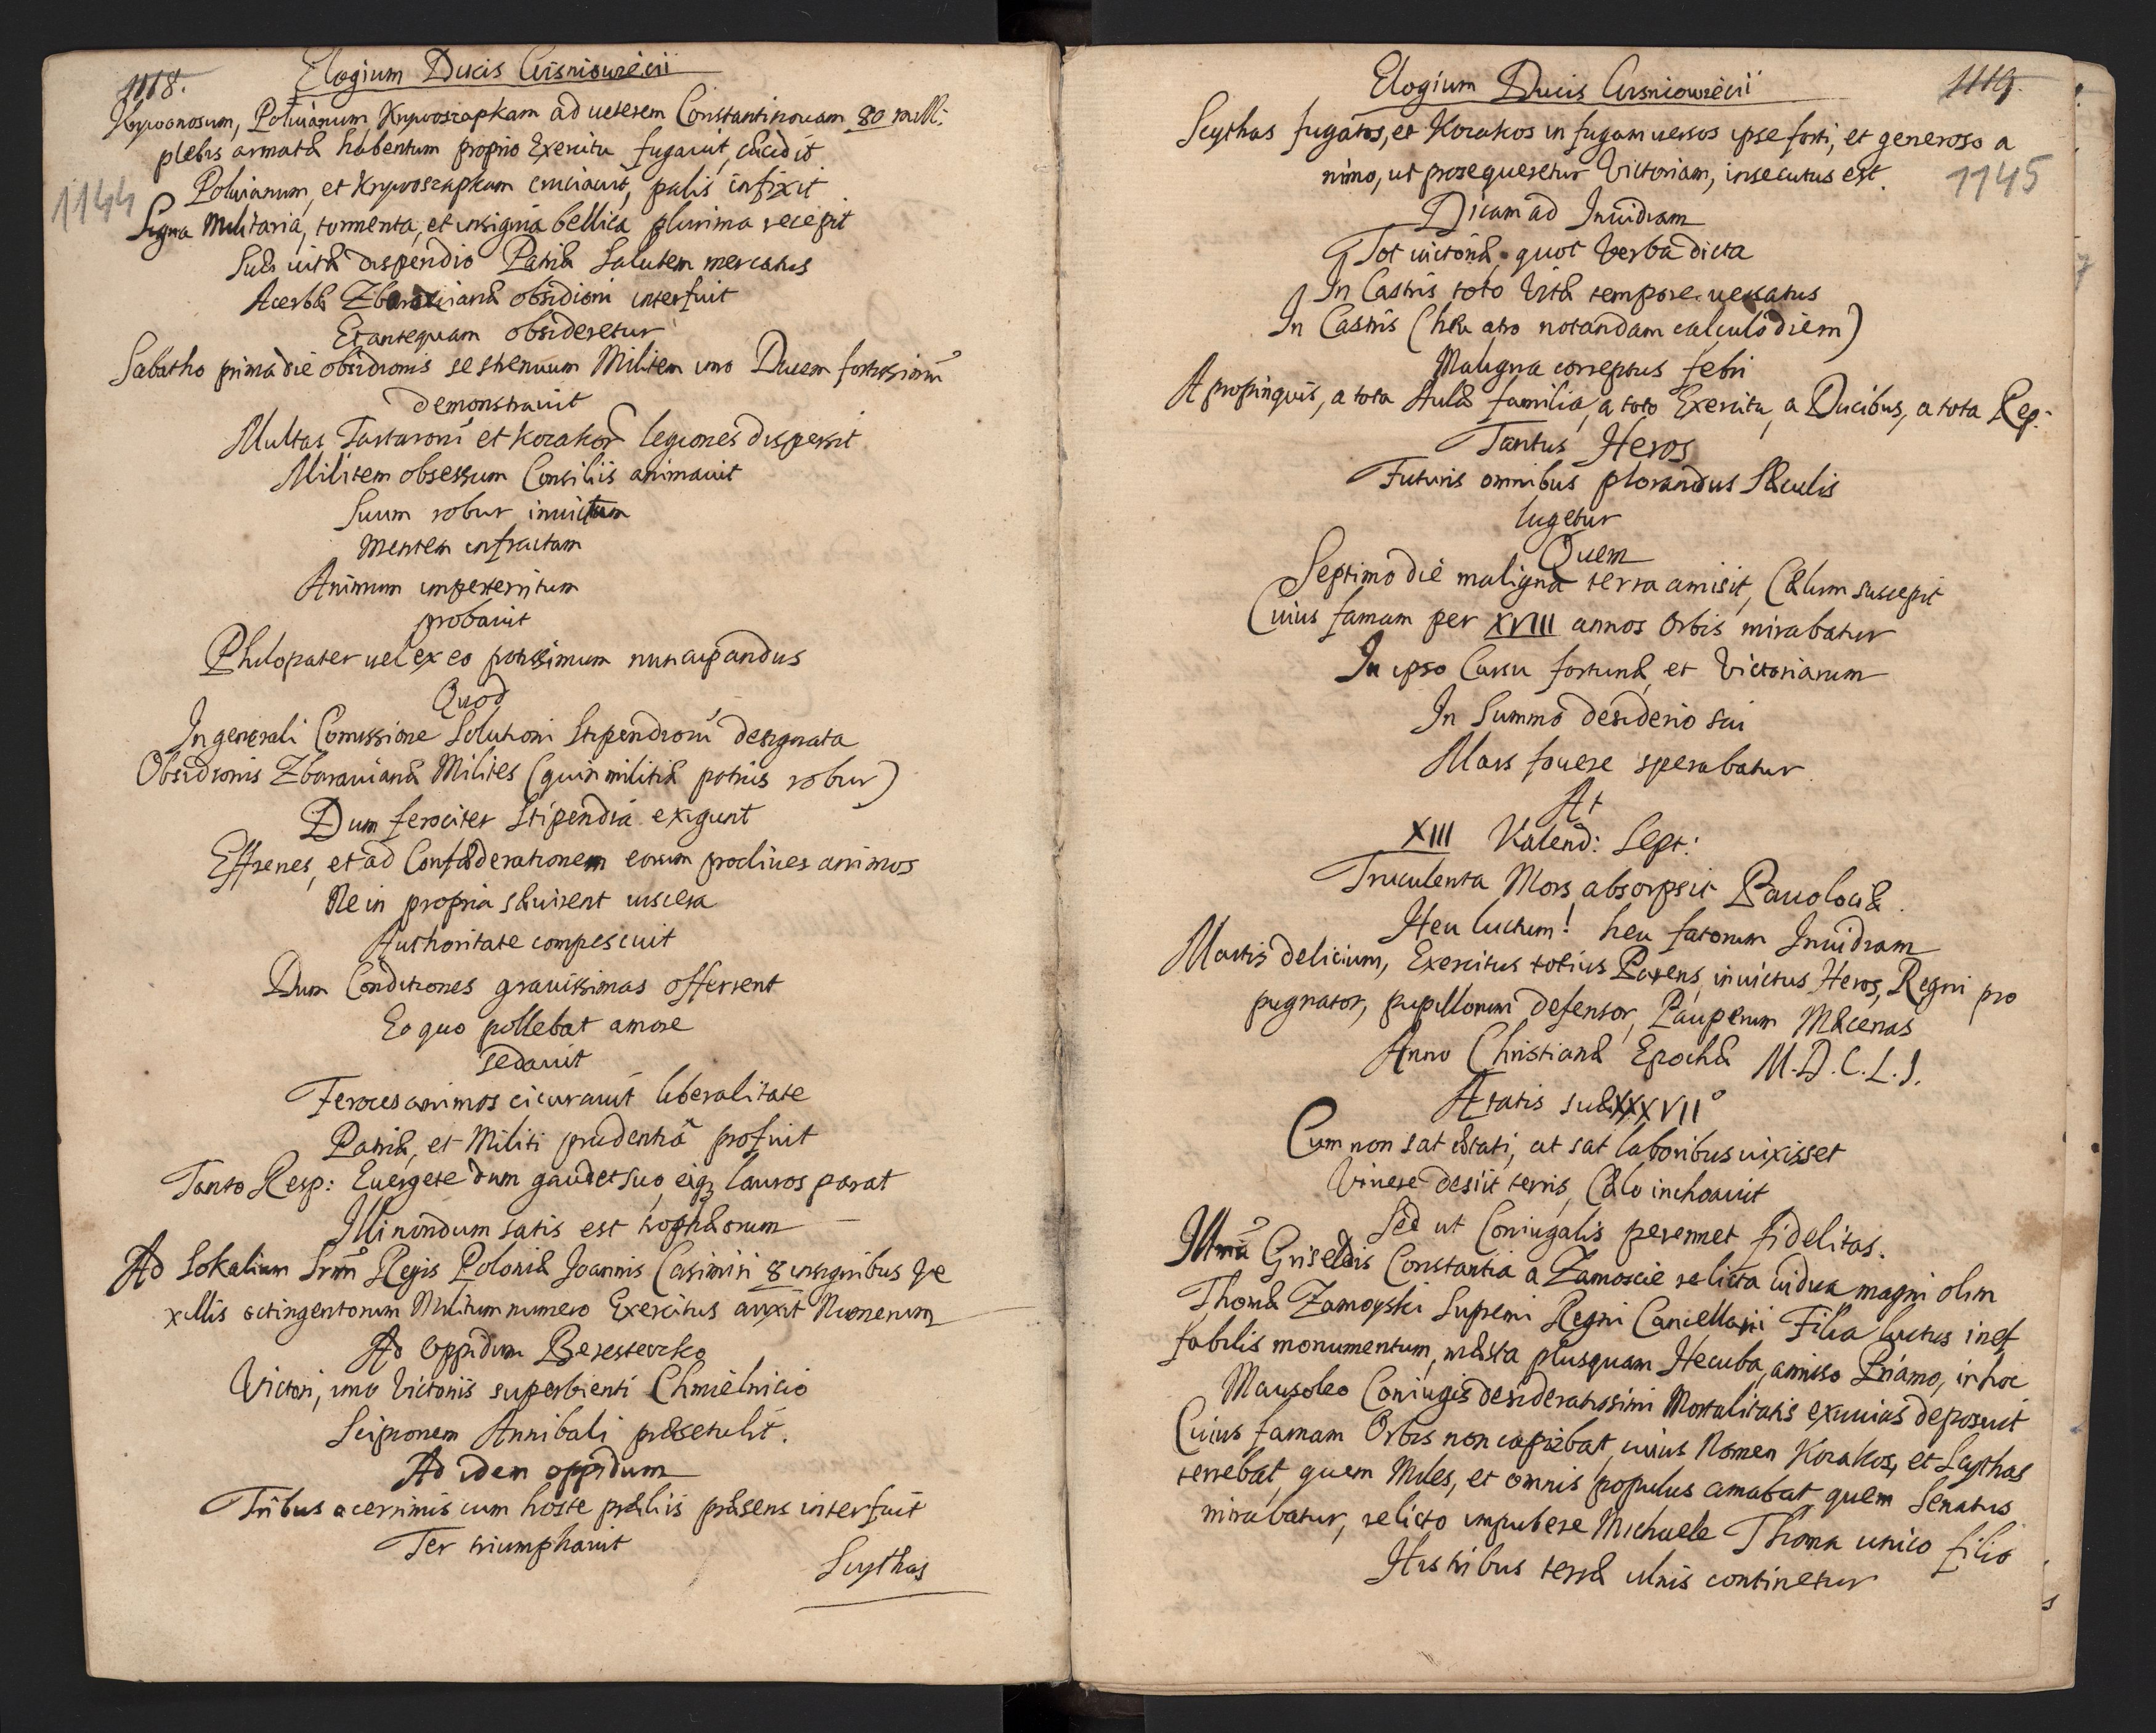 1118.
Elogium Ducis Wisniowiecii
Krywonosum, Poluianum, Krywoszapkam ad ueterem Constantinouam 80 mill:
plebis armatæ habentum proprio Exercitu fugauit, cæcidit
1144
Poluianum, et Krywoszapkam cruciauit, palis infixit
Signa Militaria, tormenta, et insignia bellica plurima recepit
Suæ uitæ dispendio Patriæ Salutem mercatus
Acerbæ Zbarauianæ obsidioni interfuit
Et antequam obsideretur
Sabatho prima die obsidionis se strenuum Militem imo Ducem fortissimũ
demonstrauit
Multas Tartarorũ et Kozakor̃ legiones dispersit
Militem obsessum Consiliis animauit
Suum robur inuictum
Mentem infractam
Animum imperterritum
probauit
Philopater uel ex eo potissimum nuncupandus
Quod
In generali Comissione Solutioni Stipendiorũ designata
Obsidionis Zbarauianæ Milites (quin militiæ potius robur)
Dum ferociter Stipendia exigunt
Effrenes, et ad Confæderationem eorum procliues animos
Ne in propria sæuirent uiscera
Authoritate compescuit
Dum Conditiones grauissimas offerrent
Eo quo pollebat amore
sedauit
Feroces animos cicurauit liberalitate
Patriæ, et Militi prudentiâ profuit
Tanto Resp: Euergete dum gaudet suo, eiq; lauros parat
Illi nondum satis est trophæorum
Ad Sokalium Srm̃i Regis Poloniæ Joannis Casimiri 8 insignibus Ve
xillis octingentorum Militum numero Exercitus auxit Numerum
Ad Oppidum Beresteczko
Victori, imo Victoriis superbienti Chmielnicio
Scipionem Annibali prætulit.
Ad idem oppidum
Tribus acerrimis cum hoste præliis præsens interfuit
Ter triumphauit
Scythas
Elogium Ducis Wisniowiecii
1119.
Scythas fugatos, et Kozakos in fugam uersos ipse forti, et generoso a
nimo, ut prosequeretur Victoriam, insecutus est.
1145
Dicam ad Inuidiam
Tot uictoriæ quot Verba dicta
In Castris toto Vitæ tempore uersatus
In Castris (heu atro notandam calculo diem)
Maligna correptus febri
A propinquis, a tota Aulæ familia, a toto Exercitu, a Ducibus, a tota Rep:
Tantus Heros
Futuris omnibus plorandus Sæculis
lugetur
Quem
Septimo die maligna terra amisit, Cælum suscepit
Cuius famam per XVIII annos Orbis mirabatur
In ipso Cursu fortunæ, et Victoriarum
In Summo desiderio sui
Mars fouere sperabatur.
At
XIII Kalend: Sept:
Truculenta Mors absorpsit Pauolociæ.
Heu luctum! heu fatorum Inuidiam
Martis delicium, Exercitus totius Parens, inuictus Heros, Regni pro
pugnator, pupillorum defensor, Pauperum Mæcenas
Anno Christianæ Epochæ M.D.C.L.I.
Ætatis suæ XXXVIIº
Cum non sat ætati, at sat laboribus uixisset
Viuere desiit terris, Cælo inchoauit
Sed ut Coniugalis perennet fidelitas.
Illm̃a Griseldis Constantia a Zamoscie relicta uidua magni olim
Thomæ Zamoyski Supremi Regni Cancellarii Filia luctus inef
fabilis monumentum, mæsta plusquam Hecuba, amisso Priamo, in hoc
Mausoleo Coniugis desideratissimi Mortalitatis exuuias deposuit
Cuius famam Orbis non capiebat, cuius Nomen Kozakos, et Scythas
terrebat, quem Miles, et omnis populus amabat, quem Senatus
mirabatur, relicto impubere Michaele Thoma unico filio
His tribus terræ ulnis continetur